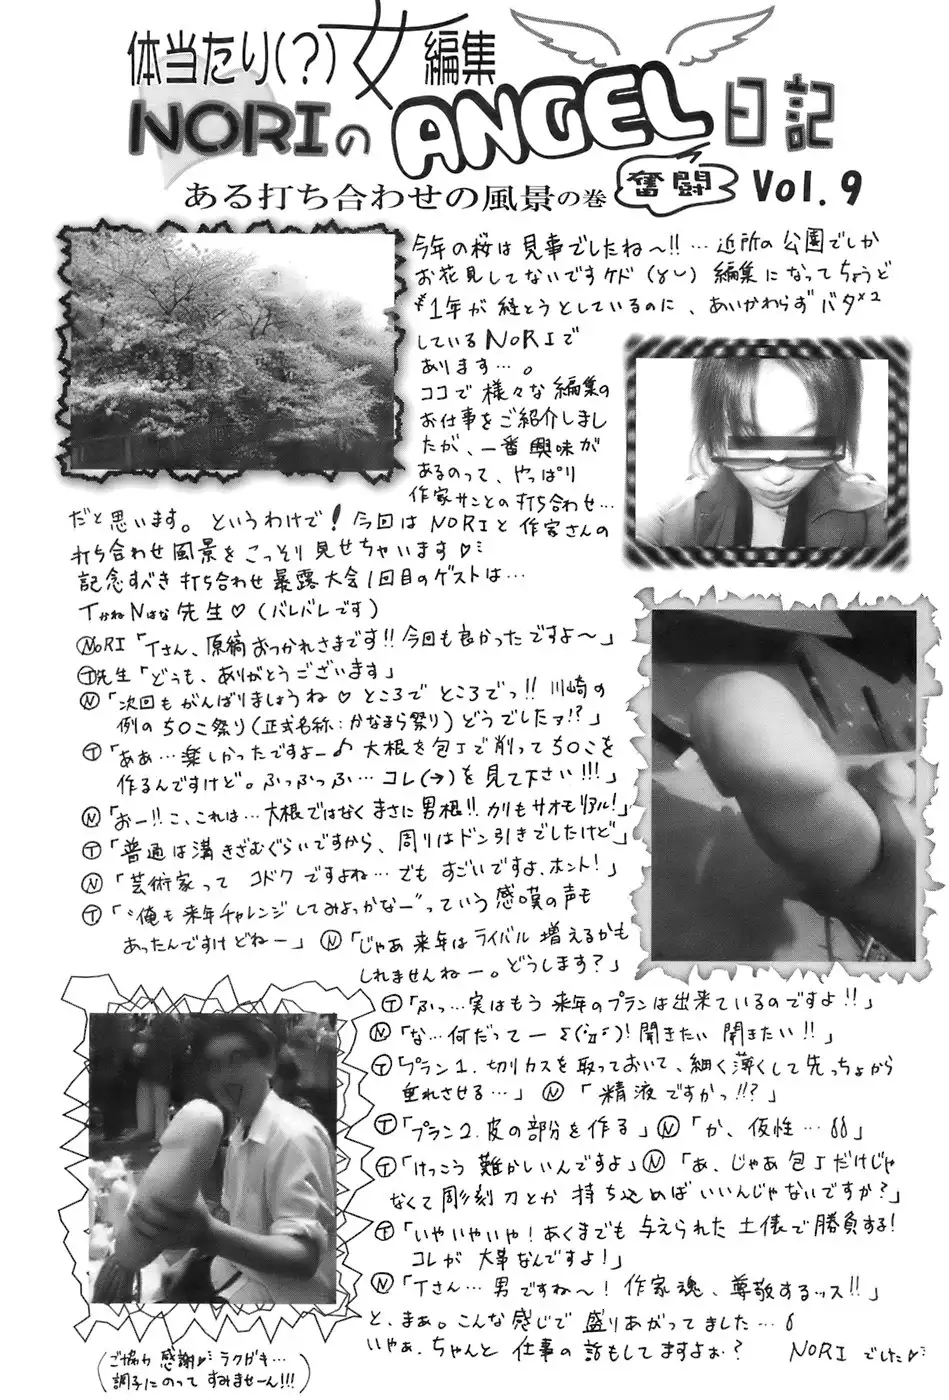 体当たり(?)女編集
NORIのANGEL日記
ある打ち合わせの風景の巻 奮闘 Vol.9
今年の桜は見事でしたね〜!!…近所の公園でしか
お花見してないですケド 編集になってちょうど
1年が経とうとしているのに、あいかわらずバタ×2
しているNORIで
あります…。
ココで様々な編集の
お仕事をご紹介しまし
たが、一番興味が
あるのって、やっぱり
作家サンとの打ち合わせ…
だと思います。というわけで!今回はNORIと作家さんの
打ち合わせ風景をこっそり見せちゃいます♡
記念すべき打ち合わせ暴露大会1回目のゲストは…
TかねNはな先生♡(バレバレです)
NORI「Tさん、原稿おつかれさまです!!今回も良かったですよ〜」
T先生「どうも、ありがとうございます」
N「次回もがんばりましょうね♡ところでところでっ!!川崎の
例のちOこ祭り(正式名称:かなまら祭り)どうでしたァ!?」
T「ああ…楽しかったですよー♪大根を包丁で削ってちOこを
作るんですけど。ふっふっふ…コレ(→)を見て下さい!!!」
N「おー!!こ、これは…大根ではなくまさに男根!!カリもサオもリアル!」
T「普通は溝きざむぐらいですから、周りはドン引きでしたけど」
N「芸術家ってコドクですよね…でもすごいですよ、ホント!」
T「"俺も来年チャレンジしてみよっかなー"っていう感嘆の声も
あったんですけどねー」N「じゃあ来年はライバル増えるかも
しれませんねー。どうします?」
T「ふっ…実はもう来年のプランは出来ているのですよ!!」
N「な…何だってーΣ(゚Д゚)!聞きたい聞きたい!!」
T「プラン1.切りカスを取っておいて、細く薄くして先っちょから
垂れさせる…」N「精液ですかっ!!?」
T「プラン2.皮の部分を作る」N「か、仮性…」
T「けっこう難かしいんですよ」N「あ、じゃあ包丁だけじゃ
なくて彫刻刀とか持ち込めばいいんじゃないですか?」
T「いやいやいや!あくまでも与えられた土俵で勝負する!
コレが大事なんですよ!」
N「Tさん…男ですね〜!作家魂、尊敬するッス!!」
と、まぁ。こんな感じで盛りあがってました…
いやぁ、ちゃんと仕事の話もしてますよぉ? NORIでした♡
(ご協力感謝♡ラクガキ…
調子にのってすみませーん!!!)